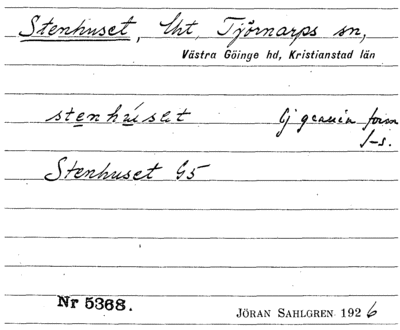 Stenhuset, lht, Tjörnarps sn,
Västra Göinge hd, Kristianstad län
stenhúset Ej genuin form
J-s.
Stenhuset G5
Nr 5368.
JÖRAN SAHLGREN 1926